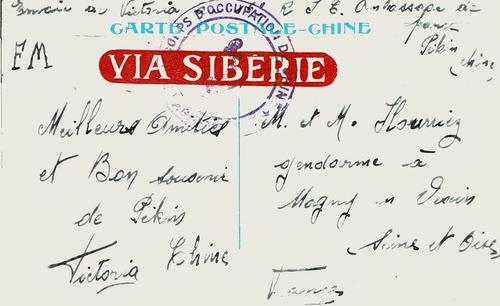 Envoie de Victoria R S E Ambassade de
France
Pékin
Chine
CARTE POSTALE-CHINE
CORPS D'OCCUPATION DE CHINE
FM
VIA SIBÉRIE
Meilleurs Amitiés
et Bon souvenir
de Pékin
Victoria Chine
M. et M.
gendarme à
Magny en Vexin
Seine et Oise
France